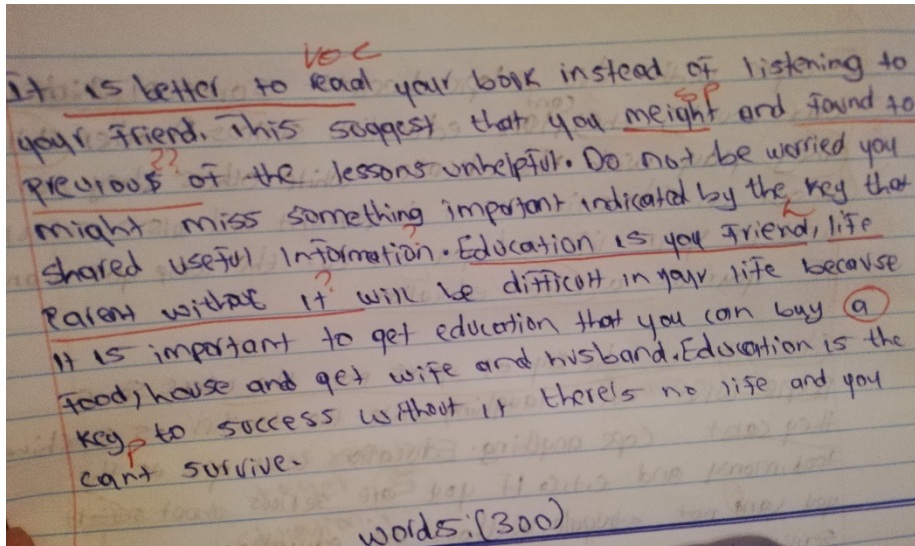 voc
It is better to read your book instead of listening to
sp
your friend. This suggest that you meight and found to
??
previous of the lessons unhelpful. Do not be worried you
might miss something important indicated by the key that
shared useful Information. Education is you friend, life
?
parent without it will be difficult in your life because
it is important to get education that you can buy a
food, house and get wife and husband. Education is the
key to success without it there's no life and you
p
can't survive.
words: (300)